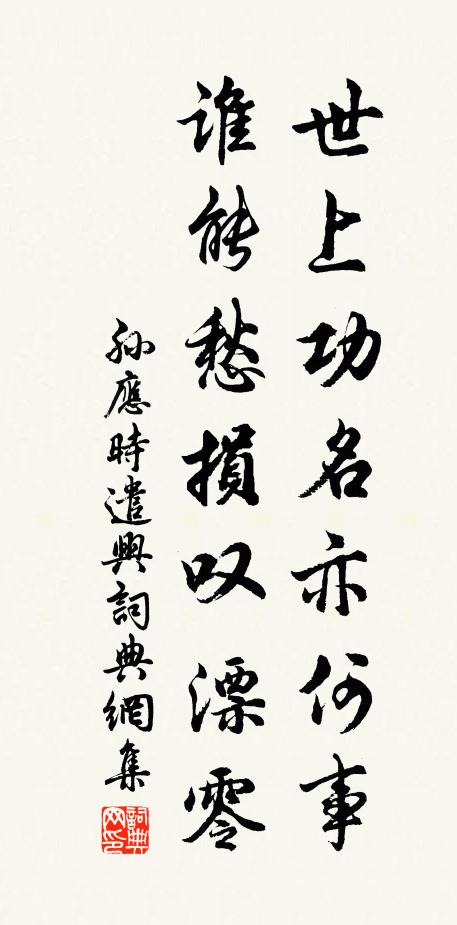 世上功名亦何事
谁能愁損叹漂零
孙應時遣興詞典網集
詞典网印